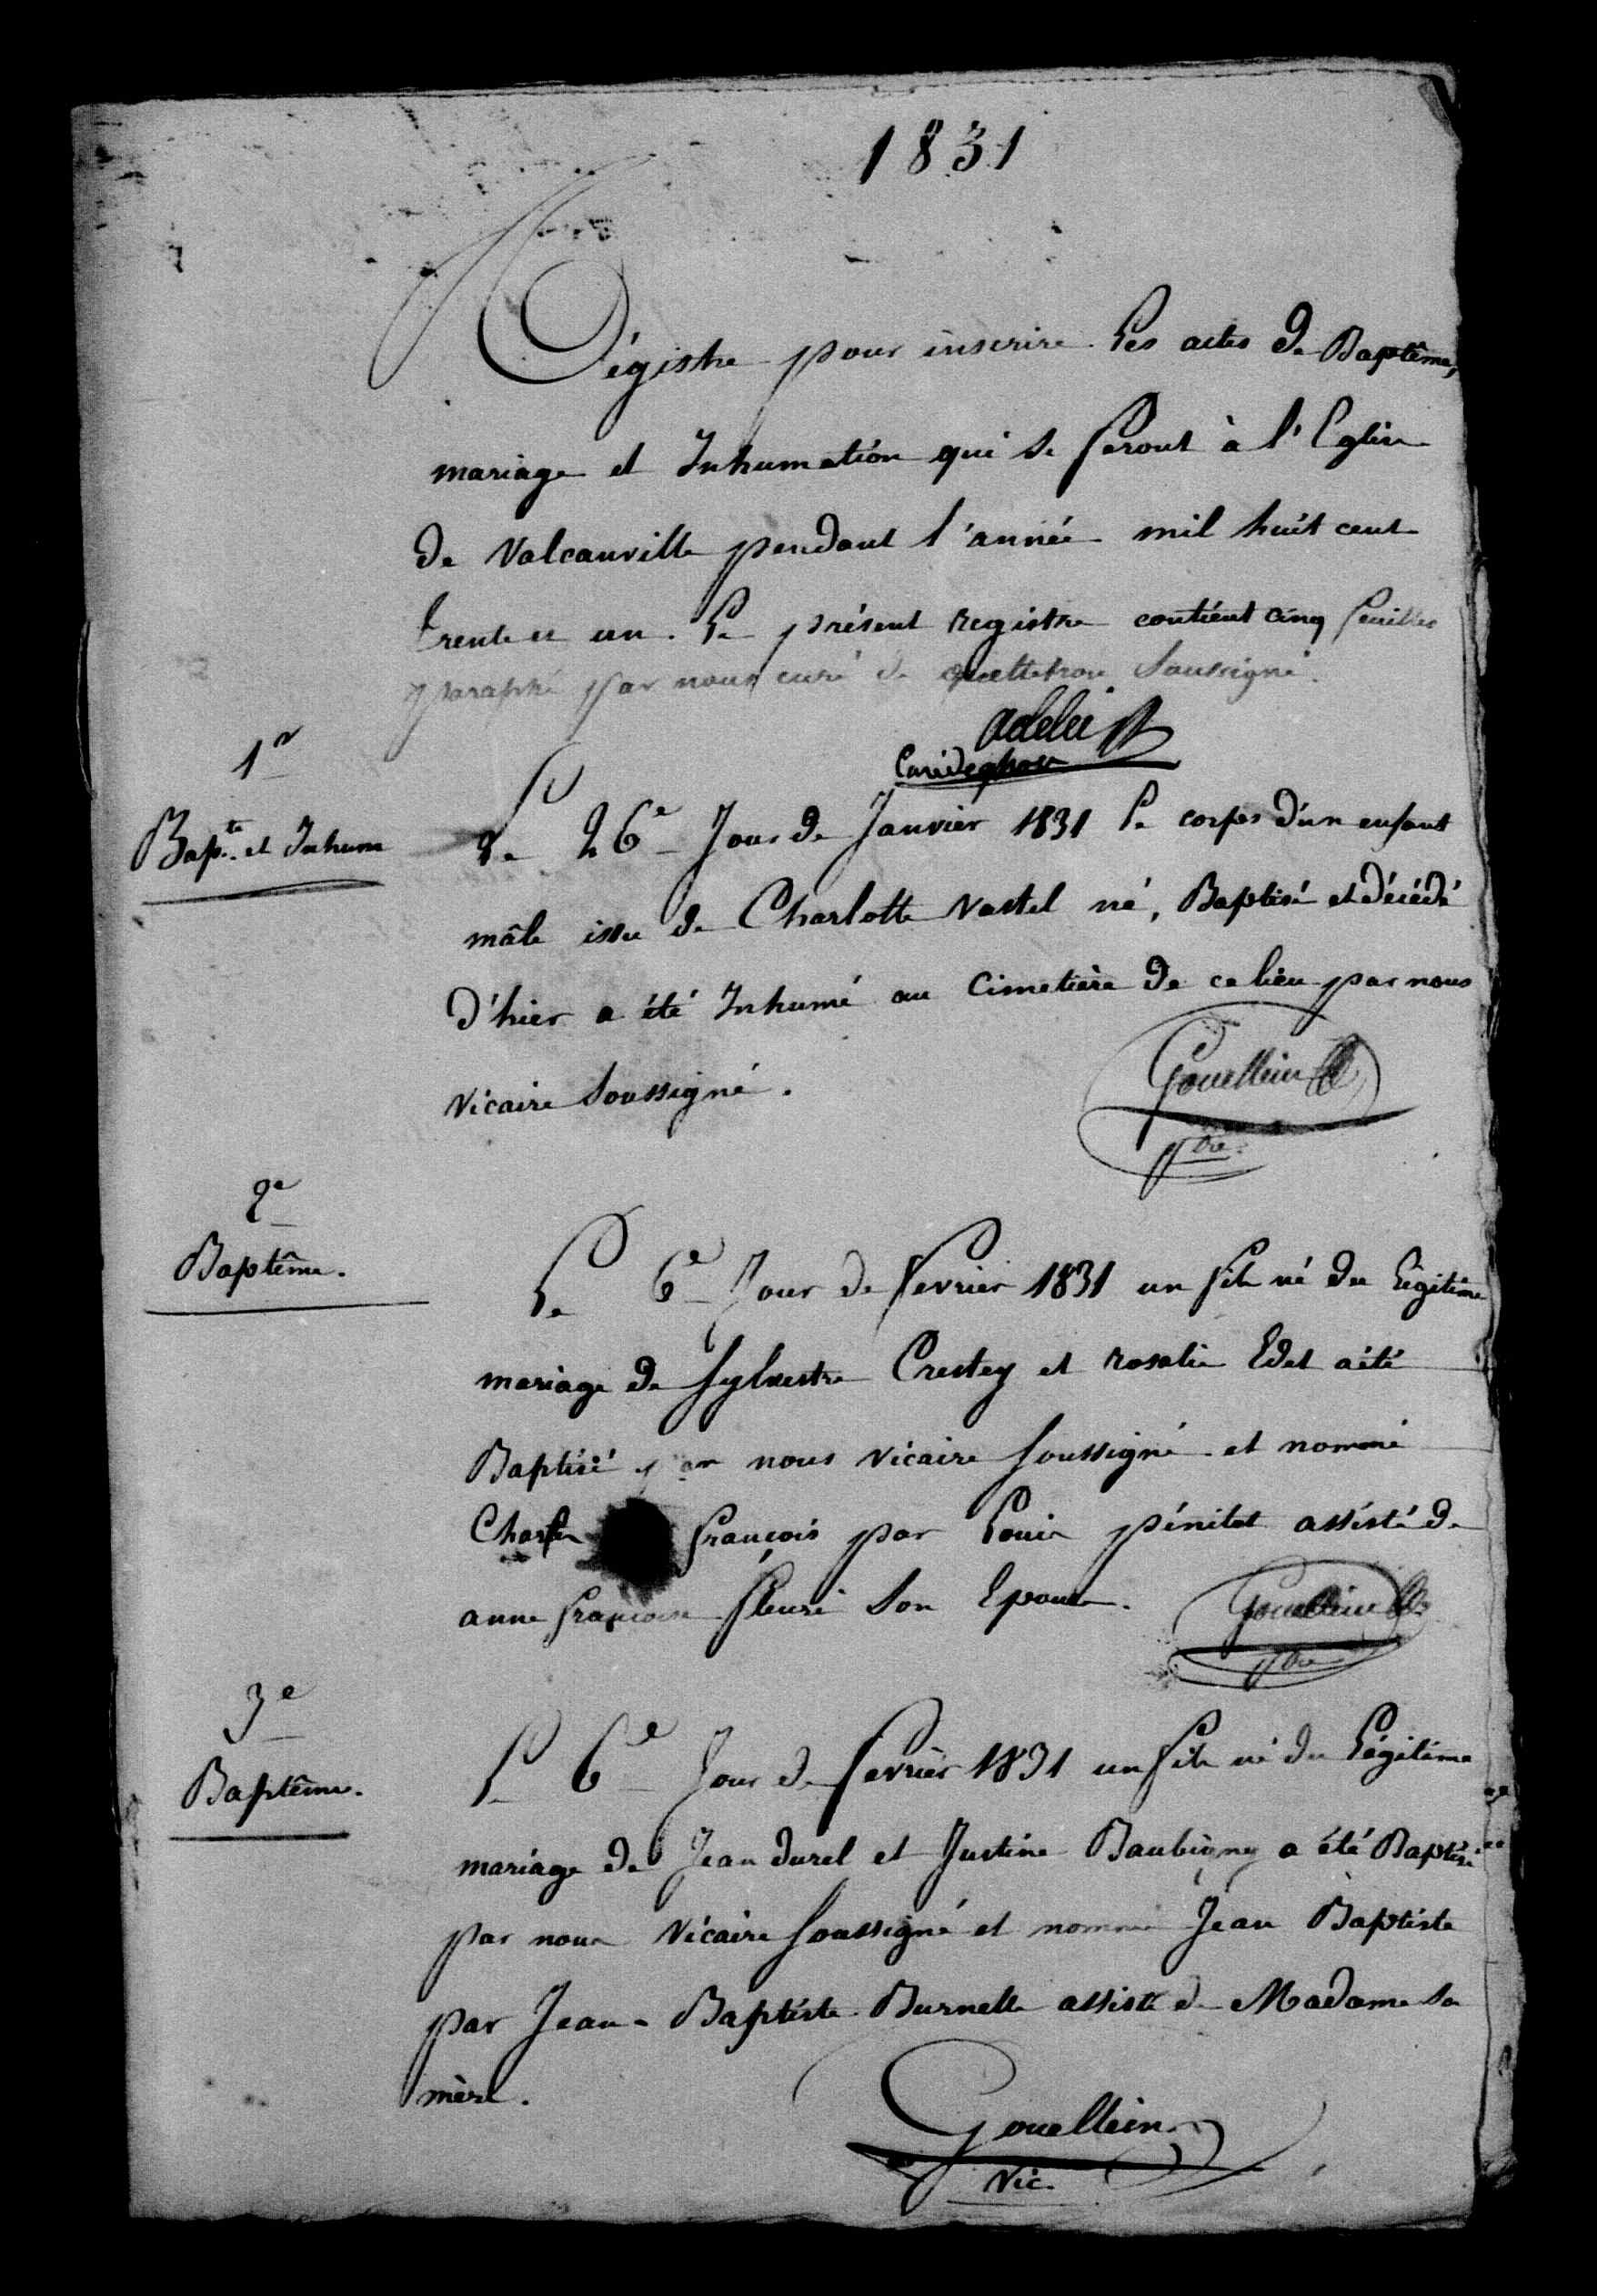 1831
Régistre pour inscrire les actes de Baptême,
mariage et Inhumation qui se feront à l'Eglise
de Valcanville pendant l'année mil huit cent
trente et un. Le présent registre contient cinq feuilles
paraphé par nous curé de quettetrou Soussigné.
adelée
1er
Bapte. et Inhum
Le 26e Jour de Janvier 1831 le corps d'un enfant
mâle issu de Charlotte Vastel né, Baptisé et décédé
d'hier a été Inhumé au Cimetière de ce lieu par nous
Vicaire Soussigné.
Gouellein
ptre.
2e
Baptême.
Le 6e Jour de fevrier 1831 un fils né du légitime
mariage de Sylvestre Crestey et rosalie Edet a été
Baptisé par nous Vicaire Soussigné et nommé
Charles françois par Louis pénitot assisté de
anne françoise fleuri Son Epouse.
Gouellein
ptre
3e
Baptême.
Le 6e Jour de fevrier 1831 un fils né du légitime
mariage de Jean durel et Justine Baubigny a été Baptisé
par nous Vicaire Soussigné et nommé Jean Baptiste
par Jean-Baptiste Burnelle assisté de Madame sa
mère.
Gouellein
Vic.